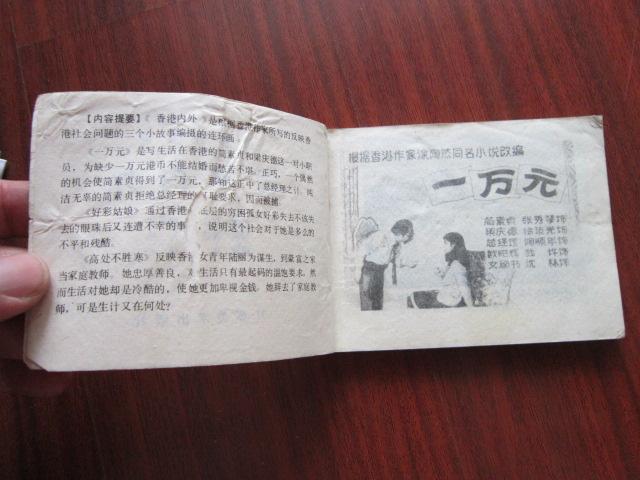 【内容提要】《香港内外》是根据香港作家所写的反映香
港社会问题的三个小故事编摄的连环画。
《一万元》是写生活在香港的简素贞和梁庆德这一对小职
员,为缺少一万元港币不能结婚而愁苦不堪。正巧,一个偶然
的机会使简素贞得到了一万元,那知这正中了总经理之计,纯
洁无辜的简素贞拒绝总经理的 耻要求,因而被捕。
《好彩姑娘》通过香港 底层的穷困孤女好彩失去不该失
去的眼珠后又连遭不幸的事 ,说明这个社会对于她是多么的
不平和残酷。
《高处不胜寒》反映香港女青年陆丽为谋生,到豪富之家
当家庭教师。她忠厚善良,对生活只有最起码的温饱要求,然
而生活对她却是冷酷的,使她更加卑视金钱。她辞去了家庭教
师,可是生计又在何处?
根据香港作家 陶然同名小说改编
一万元
简素贞 张 饰
梁庆德 饰
总经理 饰
饰
文秘书 沈 林饰